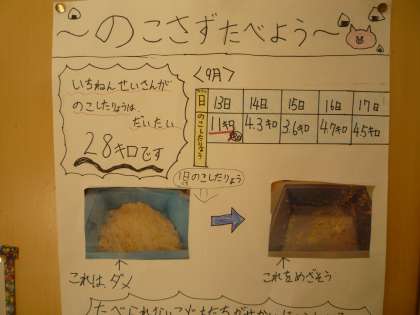 〜のこさずたべよう〜
いちねんせいさんが
のこしたりょうは、
だいたい
28キロです
<9月>
日 13日 14日 15日 16日 17日
のこしたりょう 11キロ 4.3キロ 3.6キロ 4.7キロ 4.5キロ
1日のこしたりょう
これは、ダメ
これをめざそう